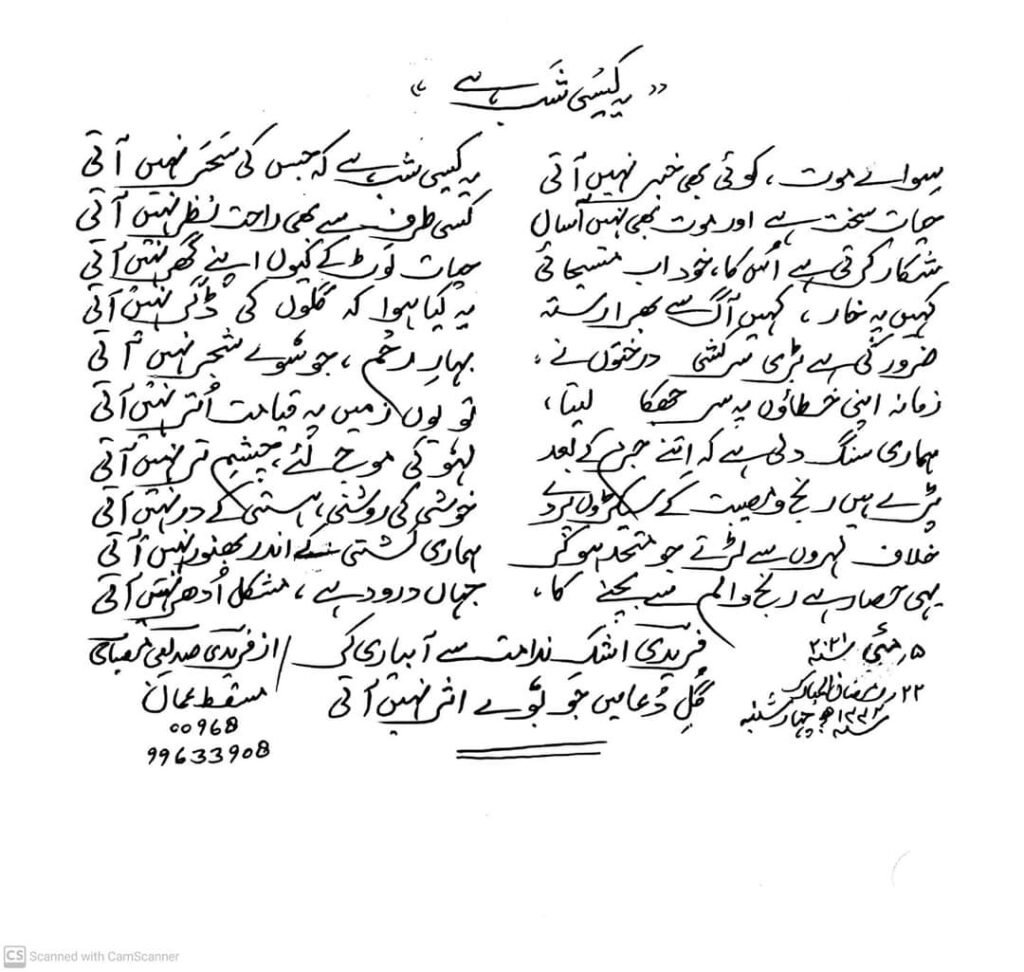 "یہ کیسی شَب ہے"
سوائے موت ، کوئی بھی خبر نہیں آتی یہ کیسی شب ہے کہ جس کی سَحَر نہیں آتی
حیات سخت ہے اور موت بھی نہیں آساں کسی طرف سے بھی راحت نظر نہیں آتی
شکار کرتی ہے اُس کا، خود اب مسیحائی حیات لَوٹ کے کیوں اپنے گھر نہیں آتی
کہیں پہ خار ، کہیں آگ سے بھرا رستہ یہ کیا ہوا کہ گلوں کی ڈگر نہیں آتی
ضرور کی ہے بڑی سرکشی درختوں نے ، بہارِ رحم ، جو سُوئے شجر نہیں آتی
زمانہ اپنی خطاؤں پہ سر جھکا لیتا ، تو یوں زمیں پہ قیامت اُتر نہیں آتی
ہماری سنگ دلی ہے کہ اِتنے جرم کے بعد لہو کی موج لئے ، چشمِ تر نہیں آتی
پڑے ہیں رنج و مصیبت کے سیکڑوں پردے خوشی کی روشنی ، ہستی کے در نہیں آتی
خلاف لہروں سے لڑتے جو متحد ہو کر ہماری کشتی کے اندر بھنور نہیں آتی
یہی حصار ہے رنج و الم سے بچنے کا ، جہاں درود ہے ، مشکل اُدھر نہیں آتی
فریدی اشک ندامت سے آبیاری کی
گُلِ دُعا میں جو بُوئے اثر نہیں آتی
از فریدی صدیقی مصباحی
مسقط عمان
00968
99633908
۵ مئی ۲۰۲۱
۲۲ رمضان المبارک
۱۴۴۲ھ چہار شنبہ
CS Scanned with CamScanner